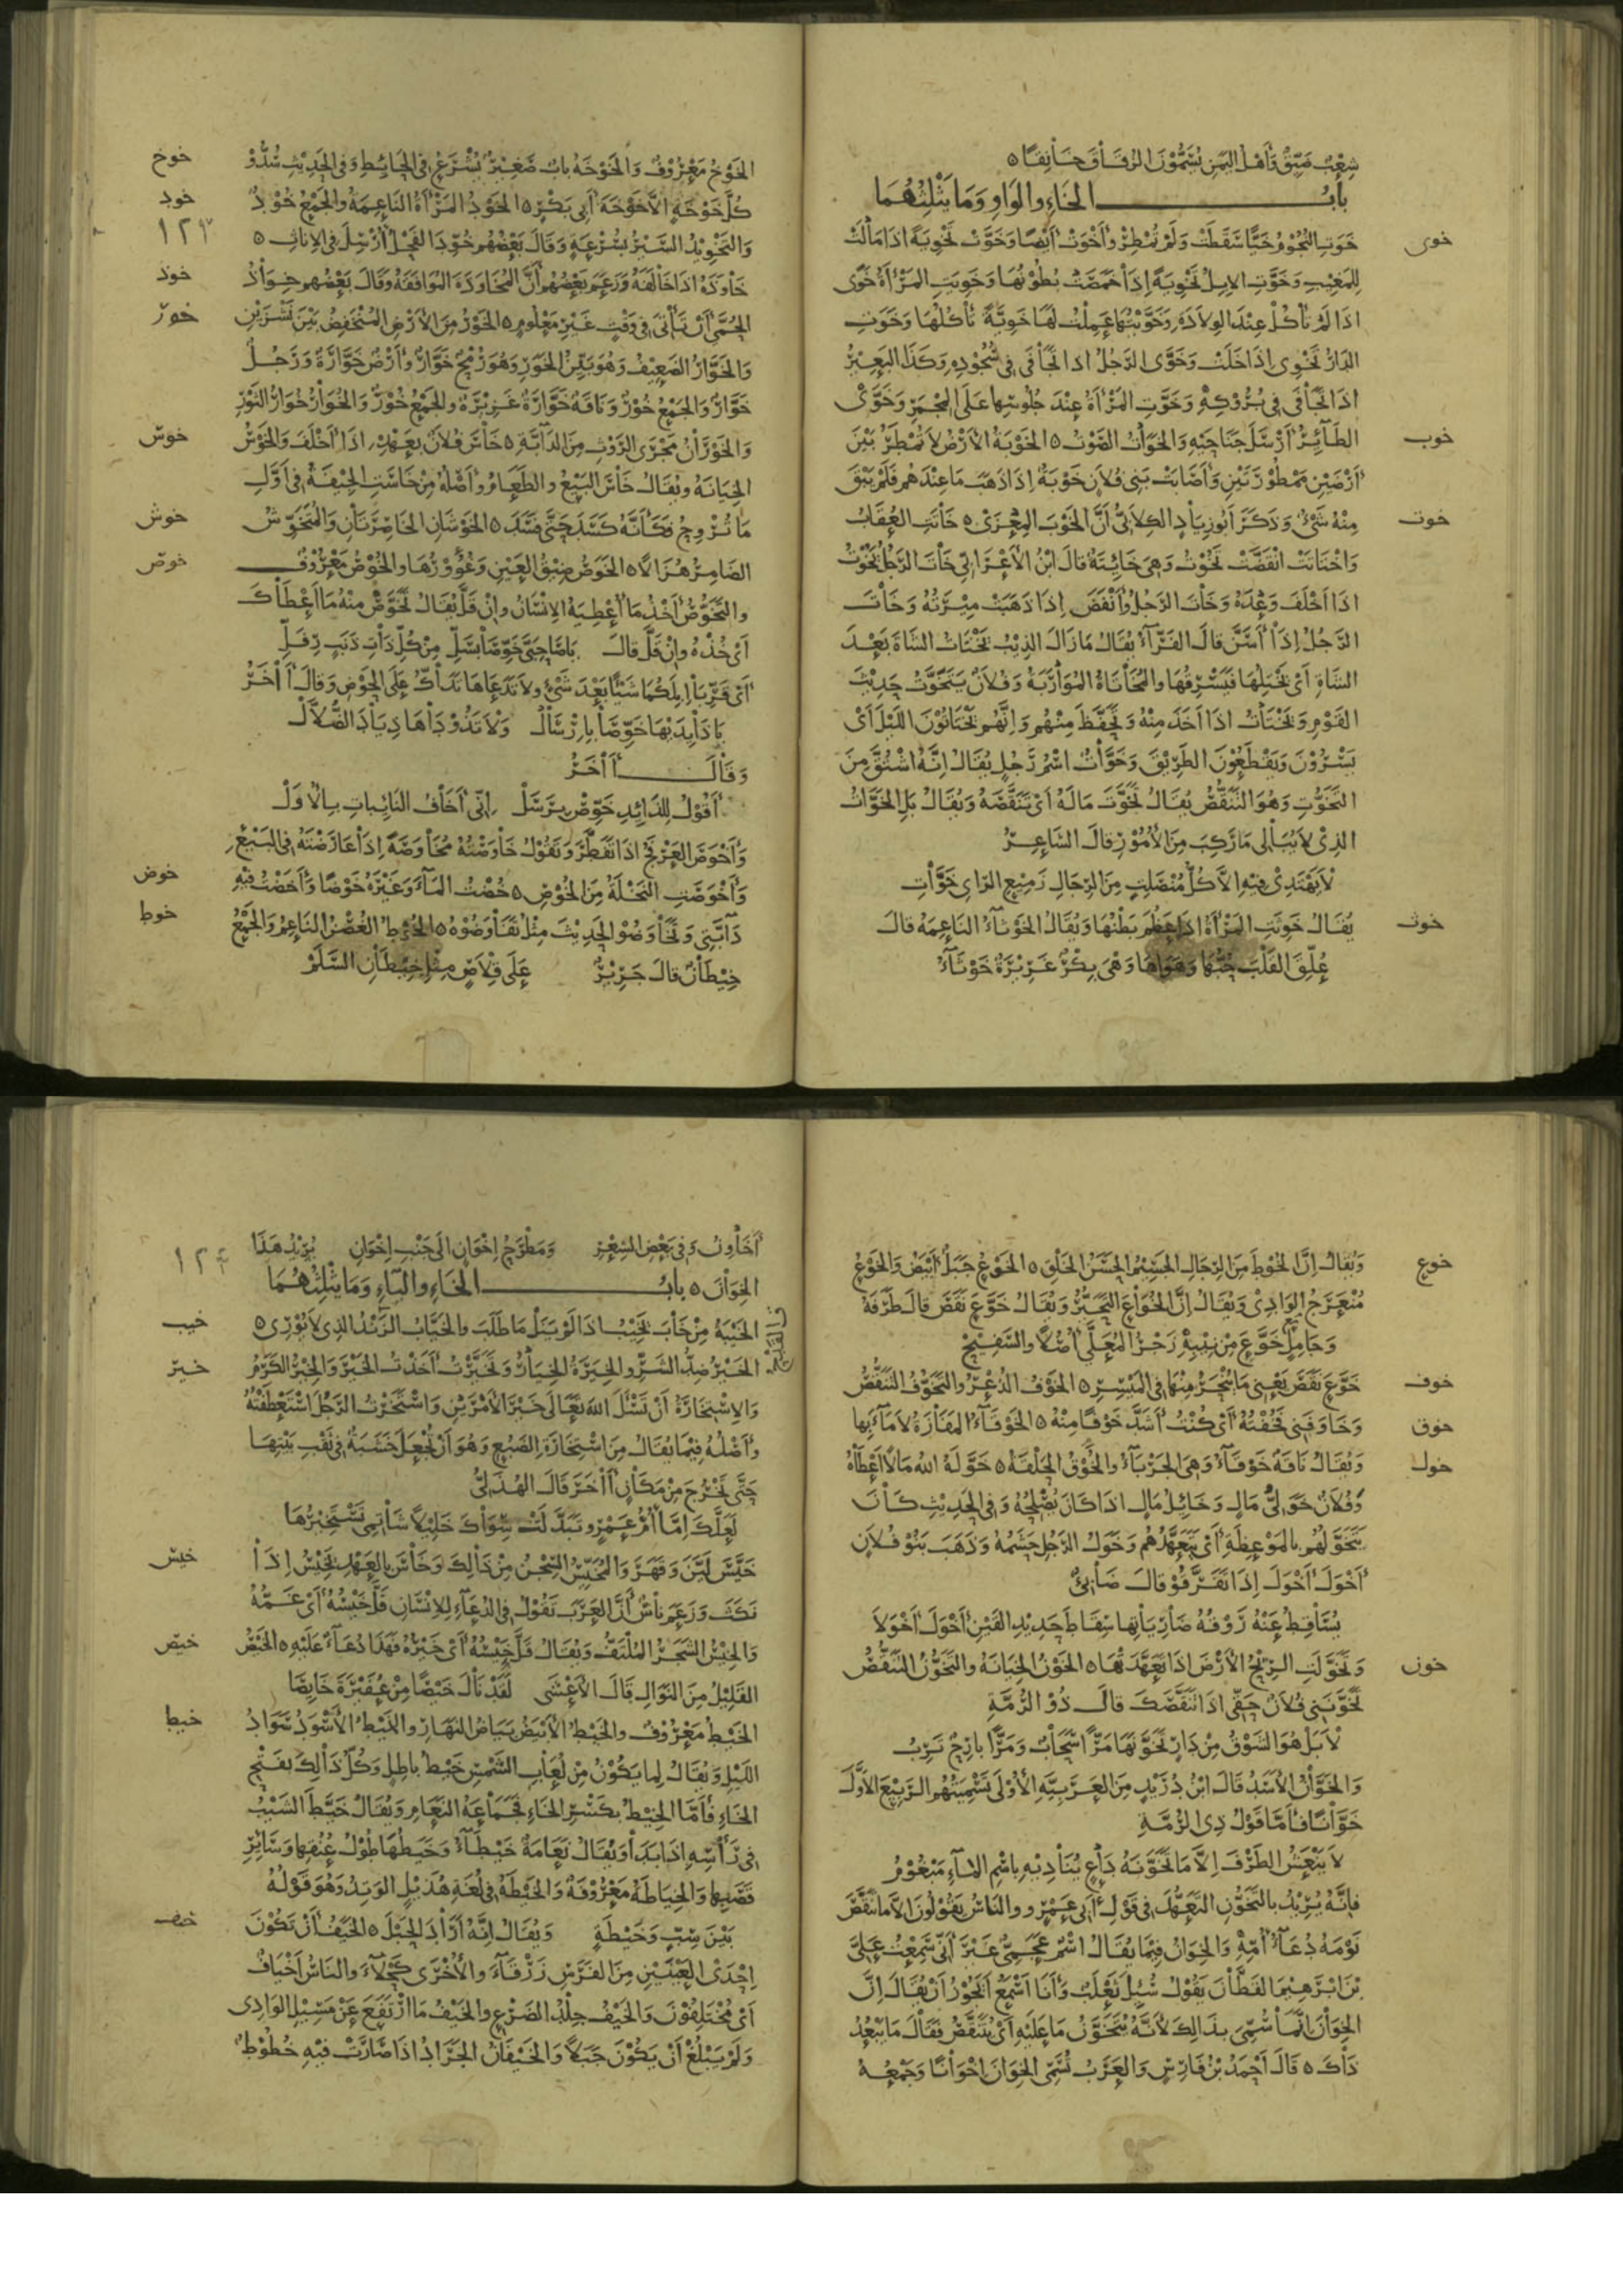 شِعْبٌ ضَيِّقٌ وَأَهْلُ اليَمَنِ يُسَمُّوْنَ الزُقَاقَ خَانِقًا ٥
بابُ الخَاءِ والوَاوِ وَمَا يَثْلِثُهُمَا
خوى
خَوَتِ النُّجُوْمُ خَيًّا سَقَطَتْ وَلَمْ تُمْطِرْ وأَخْوَتْ أَيْضًا وَخَوَّتْ تَخْوِيَةً اذَا مَالَتْ
لِلمَغِيْبِ وَخَوَّتِ الابِلُ تَخْوِيَةً إذَا خَمَصَتْ بُطُوْنُهَا وَخَوِيَتِ المَرْأَةُ خَوًى
اذَا لَمْ تَأكُلْ عِنْدَ الوِلاَدَةِ وَخَوَّيْتُهَا عَمِلْتُ لَهَا خَوِيَّةً تَأكُلُهَا وَخَوَتِ
الدَارُ تَخْوِى إذَا خَلَتْ وَخَوَّى الرَجُلُ اذا تَجَافَى فِى سُجُوْدِهِ وَكَذَا البَعِيْرُ
اذَا تَجَافَى فِى بُرُوْكِهِ وَخَوَّتِ المَرْأَةُ عِنْدَ جُلُوْسِهَا عَلَى المِجْمَرِ وَخَوَّى
خوب
الطَائِرُ أَرْسَلَ جَنَاحَيْهِ وَالخَوَاةُ الصَّوْتُ ٥ الخَوْبَةُ الأَرْضُ لاَ تُمْطَرُ بَيْنَ
أَرْضَيْنِ مَمْطُوْرَتَيْنِ وَأَصَابَتْ بَنِى فُلاَنٍ خَوْبَةٌ إذَا ذَهَبَ مَا عِنْدَهُمْ فَلَمْ يَبْقَ
خوت
مِنْهُ شَىْءٌ وَذَكَرَ أَبُو زِيَادٍ الكِلاَبِىُّ أَنَّ الخَوْبَ المِعْزَى ٥ خَاتَتِ العُقَابُ
وَاخْتَاتَتْ انْقَضَّتْ تَخُوْتُ وَهِىَ خَائِتَةٌ قَالَ ابْنُ الأَعْرَابِىِّ خَاتَ الرَّجُلُ يَخُوْتُ
اذَا أَخْلَفَ وَعْدَهُ وَخَاتَ الرَجُلُ وَأَنْفَضَ إذَا ذَهَبَتْ مِيْرَتُهُ وَخَاتَ
الرَّجُلُ إذَا أَسَنَّ قَالَ الفَرَّآءُ يُقَالُ مَا زَالَ الذِئبُ يَخْتَاتُ الشَاةَ بَعْدَ
الشَاةِ أَىْ يَخْتِلُهَا فَيَسْرِقُهَا وَالمُخَاتَاةُ المُوَارَبَةُ وَفُلاَنٌ يَتَخَوَّتُ حَدِيْثَ
القَوْمِ وَيَخْتَاتُ اذَا أَخَذَ مِنْهُ وَتَحَفَّظَ مِنْهُمْ وَإنَّهُمْ يَخْتَاتُوْنَ اللَيْلَ أَىْ
يَسْرُوْنَ وَيَقْطَعُوْنَ الطَرِيْقَ وَخَوَّاتٌ اسْمُ رَجُلٍ يُقَالُ إنَّهُ اشْتُقَّ مِنَ
التَخَوُّتِ وَهُوَ التَنَقُّصُ يُقَالُ تَخَوَّتَ مَالَهُ أَىْ تَنَقَّصَهُ وَيُقَالُ بَلِ الخَوَّاتُ
الذِىْ لاَ يُبَالِى مَا رَكِبَ مِنَ الأُمُوْرِ قَالَ الشَاعِرُ
لاَ يَهْتَدِىْ فِيْهِ الاَّ كُلُّ مُنْصَلِتٍ مِنَ الرِجَالِ زَمِيْعِ الرَاىِ خَوَّاتِ
خوث
يُقَالُ خَوِثَتِ المَرْأَةُ اذَا عَظُمَ بَطْنُهَا وَيُقَالُ الخَوْثَآءُ النَاعِمَةُ قَالَ
عُلِّقَ القَلْبَ حُبُّهَا وَهَوَاهَا وَهْىَ بِكْرٌ غَرِيْرَةٌ خَوْثَآءُ
خوخ
الخَوْخُ مَعْرُوْفٌ وَالخَوْخَةُ بابٌ صَغِيْرٌ يُشْرَعُ فِى الحَائِطِ وَفِى الحَدِيْثِ سُدُّوْا
خود
كُلَّ خَوْخَةٍ الاَّ خَوْخَةَ أَبِى بَكْرٍ ٥ الخَوْدُ المَرْأَةُ النَاعِمَةُ وَالجَمْعُ خُوْدٌ
١٢٣
وَالتَخْوِيْدُ السَيْرُ بِسُرْعَةٍ وَقَالَ بَعْضُهُمْ خَوَّدَ الفَحْلُ أُرْسِلَ فِى الإنَاثِ ٥
خوذ
خَاوَذَهُ اذَا خَالَفَهُ وَزَعَمَ بَعْضُهُمْ أَنَّ المُخَاوَذَةَ المُوَافَقَةُ وَقَالَ بَعْضُهُمْ خِوَاذُ
خور
الحُمَّى أَنْ تَأتِىَ فِى وَقْتٍ غَيْرِ مَعْلُوْمٍ ٥ الخَوْرُ مِنَ الأَرْضِ المُنْخَفِضُ بَيْنَ نَشْزَيْنِ
وَالخَوَّارُ الضَعِيْفُ وَهُوَ بَيِّنُ الخَوَرِ وَهُوَ رُمْحٌ خَوَّارٌ وأَرْضٌ خَوَّارَةٌ وَرَجُلٌ
خَوَّارٌ وَالجَمْعُ خُوْرٌ وَنَاقَةٌ خَوَّارَةٌ غَزِيْرَةٌ والجَمْعُ خُوْرٌ وَالخُوَارُ خُوَارُ الثَوْرِ
خوس
وَالخَوْرَانُ مَجْرَى الرَوْثِ مِنَ الدَآبَّةِ ٥ خَاسَ فُلاَنٌ بِعَهْدِهِ اذَا أَخْلَفَ وَالخَوْسُ
الخِيَانَةُ ويُقَالُ خَاسَ البَيْعُ وَالطَعَامُ وأَصْلُهُ مِنْ خَاسَتِ الجِيْفَةُ فِى أَوَّلِ
خوش
مَا تُرْوِحُ فَكَأَنَّهُ كَسَدَ حَتَّى فَسَدَ ٥ الخَوْشَانِ الخَاصِرَتَانِ وَالمُتَخَوِّشُ
خوص
الضَامِرُ هُزَالاً ٥ الخَوَصُ ضِيْقُ العَيْنِ وَغُؤُوْرُهَا والخُوْصُ مَعْرُوْفٌ
والتَخَوُّصُ أَخْذُ مَا أُعْطِيَهُ الإنْسَانُ وإنْ قَلَّ يُقَالُ تَخَوَّصْ مِنْهُ مَا أَعْطَاكَ
أَىْ خُذْهُ وإنْ قَلَّ قَالَ يَا صَاحِبَىَّ خَوِّصَا بِسَلِّ مِنْ كُلِّ ذَاتِ ذَنَبٍ رِفَلِّ
أَىْ قَرِّبَا إبِلَكُمَا شَيْئًا بَعْدَ شَىْءٍ ولاَ تَدَعَاهَا تَدَاكُّ عَلَى الحَوْضِ وَقَالَ أَأْخَرُ
يَا ذَائِدَيْهَا خَوِّصَا بِإرْسَالْ وَلاَ تَذُوْدَاهَا ذِيَادَ الضُلاَّلْ
وَقَالَ أَأْخَرُ
أَقُوْلُ لِلذَائِدِ خَوِّصْ بِرَسَلْ إنِّى أَخَافُ النَائِبَاتِ بِالأُوَلْ
وَأَخْوَصَ العَرْفَجُ اذَا تَفَطَّرَ وَتَقُوْلُ خَاوَصْتُهُ مُخَاوَصَةً إذَا عَارَضْتَهُ فِى البَيْعِ
خوض
وَأَخْوَصَتِ النَخْلَةُ مِنَ الخُوْصِ ٥ خُضْتُ المَآءَ وَغَيْرَهُ خَوْضًا وَأَخَضْتُ فِيْهِ
خوط
دَآبَّتِى وَتَخَاوَضُوْا الحَدِيْثَ مِثْلُ تَفَاوَضُوْهُ ٥ الخُوْطُ الغُصْنُ النَاعِمُ وَالجَمْعُ
خِيْطَانٌ قَالَ جَرِيْرٌ عَلَى قِلاَصٍ مِثْلِ خِيْطَانِ السَلَمْ
خوع
وَيُقَالُ إنَّ الخُوْطَ مِنَ الرِجَالِ الجَسِيْمُ الحَسَنُ الخَلْقِ ٥ الخَوْعُ جَبَلٌ أَبْيَضُ وَالخَوْعُ
مُنْعَرَجُ الوَادِىْ وَيُقَالُ إنَّ الخُوَاعَ التَحَيُّرُ وَيُقَالُ خَوَّعَ نَقَصَ قَالَ طَرَفَةُ
وَجَامِلٍ خَوَّعَ مِنْ نِيْبِهِ زَجْرُ المُعَلَّى أُصُلاً والسَفِيْحْ
خوف
خَوَّعَ نَقَصَ يَعْنِى مَا يُنْحَرُ مِنْهَا فِى المَيْسِرِ ٥ الخَوْفُ الذُعْرُ والتَخَوُّفُ التَنَقُّصُ
خوق
وَخَاوَفَنِى فَخُفْتُهُ أَىْ كُنْتُ أَشَدَّ خَوْفًا مِنْهُ ٥ الخَوْقَآءُ المَفَازَةُ لاَ مَآءَ بِها
خول
وَيُقَالُ نَاقَةٌ خَوْقَآءُ وَهِىَ الجَرْبَآءُ والخَوْقُ الحَلْقَةُ ٥ خَوَّلَهُ اللهُ مَالاً أَعْطَاهُ
وَفُلاَنٌ خَوَلِىُّ مَالٍ وَخَائِلُ مَالٍ اذَا كَانَ يُصْلِحُهُ وَفِى الحَدِيْثِ كَانَ
يَتَخَوَّلُهُمْ بِالمَوْعِظَةِ أَىْ يَتَعَهَّدُهُمْ وَخَوَلُ الرَجُلِ حَشَمُهُ وَذَهَبَ بَنُوْ فُلاَنٍ
أَخْوَلَ أَخْوَلَ إذَا تَفَرَّقُوْ قَالَ ضَابِئٌ
يُسَاقِطُ عَنْهُ رَوْقُهُ ضَارِيَاتِهَا سِقَاطَ حَدِيْدِ القَيْنِ أَخْوَلَ أَخْوَلاَ
خون
وَتَخَوَّلَتِ الرِيْحُ الأَرْضَ اذَا تَعَهَّدَتْهَا ٥ الخَوْنُ الخِيَانَةُ والتَخَوُّنُ التَنَقُّصُ
تَخَوَّنَنِى فُلاَنٌ حَقِّى اذَا تَنَقَّصَكَ قَالَ ذُوْ الرُمَّةِ
لاَ بَلْ هُوَ الشَوْقُ مِنْ دَارٍ تَخَوَّنَهَا مَرًّا سَحَابٌ وَمَرًّا بَارِحٌ تَرِبُ
وَالخَوَّانُ الأَسَدُ قَالَ ابْنُ دُرَيْدٍ مِنَ العَرَبِيَّةِ الأُوْلَى تَسْمِيَتُهُم الرَبِيْعَ الأَوَّلَ
خَوَّانًا فَأَمَّا قَوْلُ ذِى الرُمَّةِ
لاَ يَنْعَشُ الطَرْفَ إلاَّ مَا تَخَوَّنَهُ دَاعٍ يُنَادِيْهِ بِاسْمِ المَآءِ مَبْغُوْمُ
فَإنَّهُ يُرِيْدُ بِالتَخَوُّنِ التَعَهُّدَ فِى قَوْلِ أَبِى عَمْرٍو وَالنَاسُ يَقُوْلُوْنَ الاَّ مَا نَقَّصَ
نَوْمَهُ دُعَآءُ أُمِّهِ وَالخِوَانُ فِيْمَا يُقَالُ اسْمٌ عَجَمِىٌّ غَيْرَ أَنِّى سَمِعْتُ عَلِىَّ
بْنَ ابْرَهِيْمَ القَطَّانَ يَقُوْلُ سُئِلَ ثَعْلَبٌ وَأَنَا أَسْمَعُ أَيَجُوْزُ أَنْ يُقَالَ إنَّ
الخِوَانَ إنَّمَا سُمِّىَ بِذَالِكَ لأَنَّهُ يُتَخَوَّنُ مَا عَلَيْهِ أَىْ يُتَنَقَّصُ فَقَالَ مَا يَبْعُدُ
ذَاكَ ٥ قَالَ أَحْمَدُ بْنُ فَارِسٍ وَالعَرَبُ تُسَمِّى الخِوَانَ إخْوَانًا وَجَمْعُهُ
أَخَاوِنُ وَفِى بَعْضِ الشِعْرِ وَمَطْرَحُ إخْوَانٍ الَى جَنْبِ إخْوَانِ يُرِيْدُ هَذَا
١٢٤
الخِوَانَ ٥ بابُ الخَاءِ واليَاءِ وَمَا يَثْلِثُهُمَا
خيب
الخَيْبَةُ مِنْ خَابَ يَخِيْبُ اذَا لَمْ يَنَلْ مَا طَلَبَ وَالخَيَّابُ الزَنْدُ الذِى لاَ يُوْرِى ٥
خير
الخَيْرُ ضِدُّ الشَرِّ والخِيَرَةُ الخِيَارُ وَتَخَيَّرْتُ أَخَذْتُ الخَيْرَ وَالخِيْرُ الكَرَمُ
وَالإسْتِخَارَةُ أَنْ تَسْئَلَ اللهَ تَعَالَى خَيْرَ الأَمْرَيْنِ وَاسْتَخَرْتُ الرَجُلَ اسْتَعْطَفْتُهُ
وأَصْلُهُ فِيْمَا يُقَالُ مِنَ اسْتِخَارَةِ الضَبُعِ وَهُوَ أَنْ تُجْعَلَ خَشَبَةٌ فِى ثَقْبِ بَيْتِهَا
حَتَّى تَخْرُجَ مِنْ مَكَانٍ أَأْخَرَ قَالَ الهُذَلِىُّ
لَعَلَّكَ إمَّا أُمُّ عَمْرٍو تَبَدَّلَتْ سِوَاكَ خَلِيْلاً شَاتِمِى تَسْتَخِيْرُهَا
خيس
خَيَّسَ لَيَّنَ وَقَهَرَ وَالمُخَيَّسُ السِجْنُ مِنْ ذَالِكَ وَخَاسَ بِالعَهْدِ يَخِيْسُ إذَا
نَكَثَ وَزَعَمَ نَاسٌ أَنَّ العَرَبَ تَقُوْلُ فِى الدُعَآءِ لِلإنْسَانِ قَلَّ خَيْسُهُ أَىْ غَمُّهُ
خيص
وَالخِيْسُ الشَجَرُ المُلْتَفُّ وَيُقَالُ قَلَّ خَيْسُهُ أَىْ خَيْرُهُ فَهَذَا دُعَآءٌ عَلَيْهِ ٥ الخَيْصُ
القَلِيْلُ مِنَ النَوَالِ قَالَ الأَعْشَى لَقَدْ نَالَ خَيْصًا مِنْ عُفَيْرَةَ خَايِصَا
خيط
الخَيْطُ مَعْرُوْفٌ والخَيْطُ الأَبْيَضُ بَيَاضُ النَهَارِ والخَيْطُ الأَسْوَدُ سَوَادُ
اللَيْلِ وَيُقَالُ لِمَا يَكُوْنُ مِنْ لُعَابِ الشَمْسِ خَيْطُ بَاطِلٍ وَكُلُّ ذَالِكَ بِفَتْحِ
الخَاءِ فَأَمَّا الخِيْطُ بِكَسْرِ الخَاءِ فَجَمَاعَةُ النَعَامِ وَيُقَالُ خَيَّطَ الشَيْبُ
فِى رَأسِهِ اذَا بَدَا وَيُقَالُ نَعَامَةٌ خَيْطَآءُ وَخَيَطُهَا طُوْلُ عُنُقِهَا وَسَائِرِ
قَصَبِهَا وَالخِيَاطَةُ مَعْرُوْفَةٌ وَالخَيْطَةُ فِى لُغَةِ هُذَيْلٍ الوَتِدُ وَهُوَ قَوْلُهُ
خيف
بَيْنَ سِبٍّ وَخَيْطَةٍ وَيُقَالُ إنَّهُ أَرَادَ الحَبْلَ ٥ الخَيَفُ أَنْ تَكُوْنَ
إحْدَى العَيْنَيْنِ مِنَ الفَرَسِ زَرْقَآءَ والأُخْرَى كَحْلآءَ وَالنَاسُ أَخْيَافٌ
أَىْ مُخْتَلِفُوْنَ وَالخَيْفُ جِلْدُ الضَرْعِ وَالخَيْفُ مَا ارْتَفَعَ عَنْ مَسِيْلِ الوَادِى
وَلَمْ يَبْلُغْ أَنْ يَكُوْنَ جَبَلاً وَالخَيْفَانُ الجَرَادُ اذَا صَارَتْ فِيْهِ خُطُوْطٌ